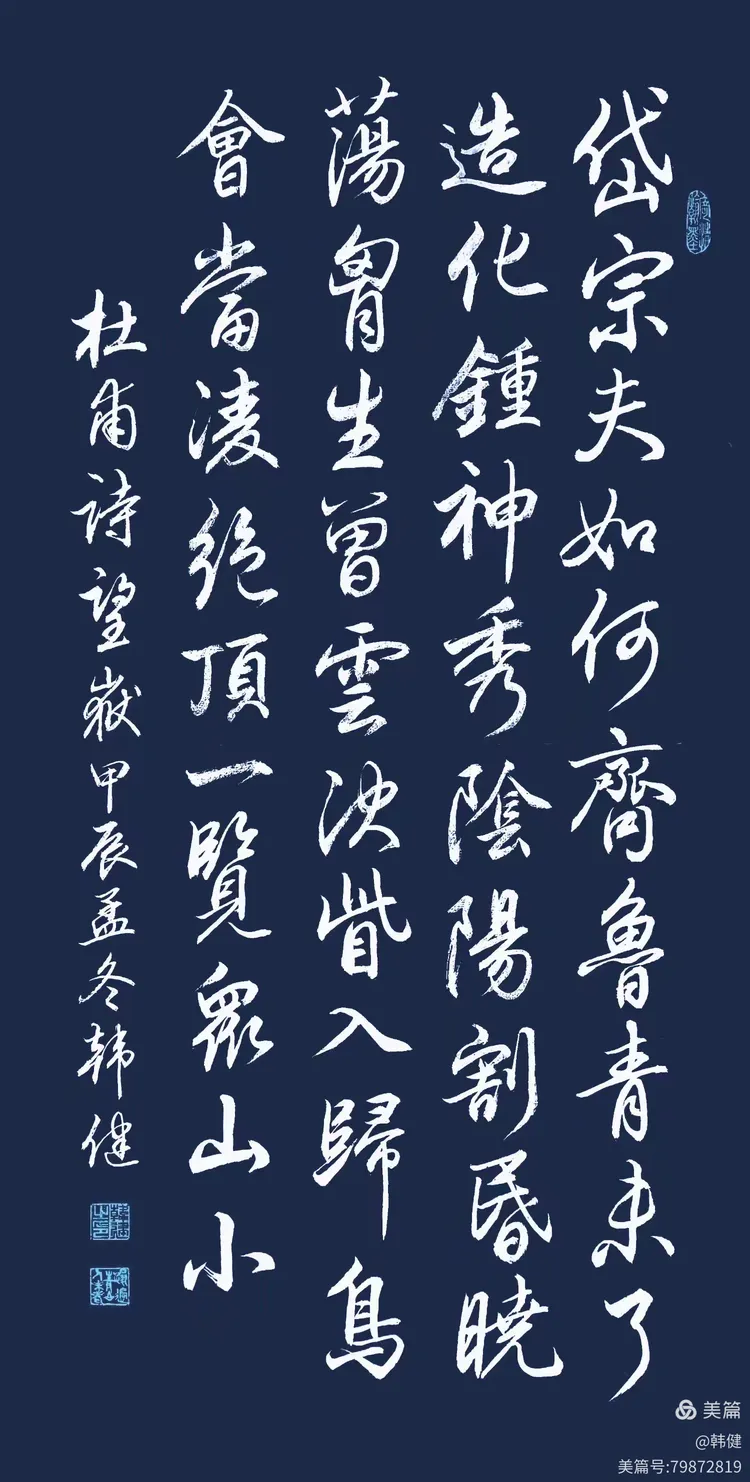 岱宗夫如何齊魯青未了
造化鍾神秀陰陽割昏曉
蕩胷生曾雲決眥入歸鳥
會當凌絕頂一覽眾山小
杜甫詩望嶽甲辰孟冬韩健
美篇
@韩健
美篇号:79872819